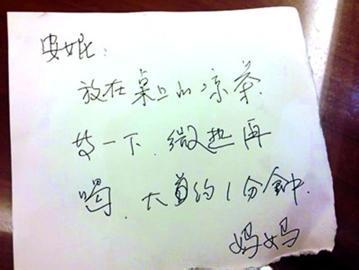 安妮：
放在桌上的凉茶
转一下.微热再
喝.大普约1分钟.
妈妈